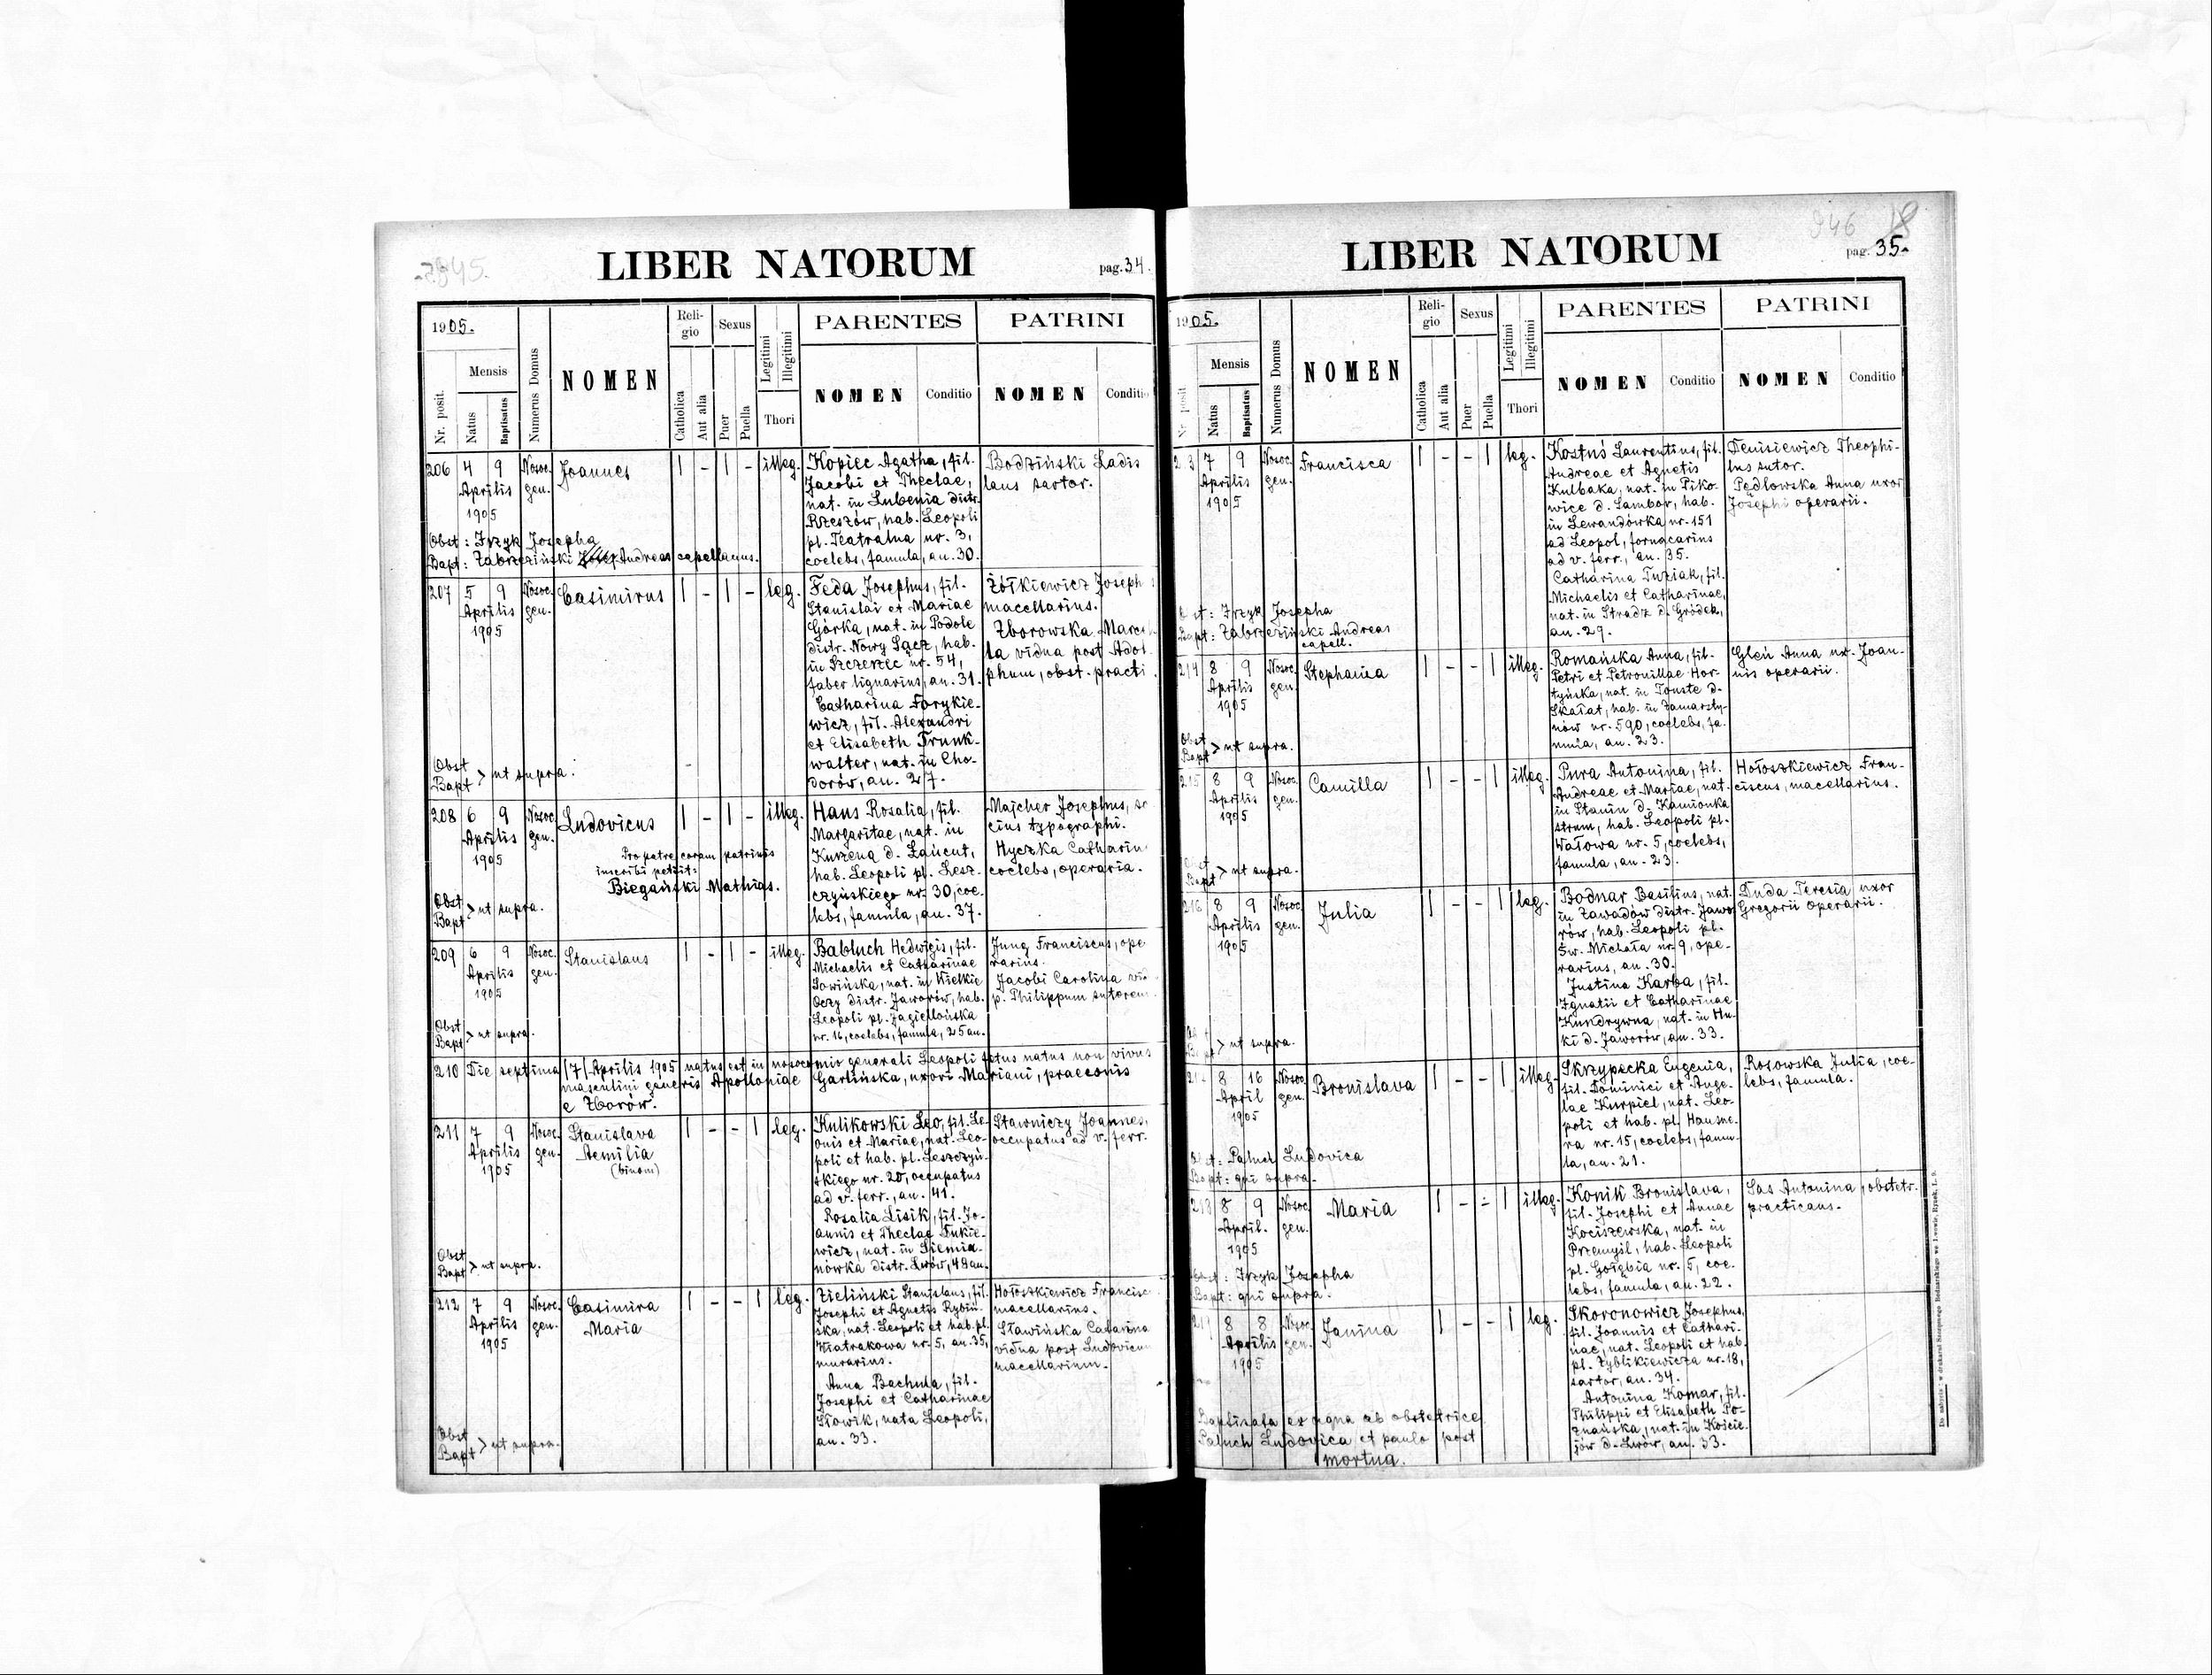 LIBER NATORUM
pag. 34.
1905.
Nr. posit.
Mensis
Natus
Baptisatus
Numerus Domus
NOMEN
Religio
Catholica
Aut alia
Sexus
Puer
Puella
Legitimi
Illegitimi
Thori
PARENTES
NOMEN
Conditio
PATRINI
NOMEN
Conditio
206 4 9 Aprilis 1905
Nosoc. gen.
Joannes
1 - 1 - illeg.
Kopiec Agatha, fil.
Jacobi et Theclae,
nat. in Lubenia distr.
Rzeszów, hab. Leopoli
pl. Teatralna nr. 3,
coelebs, famula, an. 30.
Bodziński Ladis
laus sartor.
Obst: Fryzk Josepha
Bapt: Zabrzeziński Andreas capellanus.
207 5 9 Aprilis 1905
Nosoc. gen.
Casimirus
1 - 1 - leg.
Feda Josephus, fil.
Stanislai et Mariae
Górka, nat. in Podole
distr. Nowy Sącz, hab.
in Szczerzec nr. 54,
faber lignarius, an. 31.
Catharina Forykie-
wicz, fil. Alexandri
et Elisabeth Trunk-
walter, nat. in Cho-
dorów, an. 27.
Żółkiewicz Joseph
macellarius.
Zborowska Marce
la vidua post Adol
phum, obst. practi
Obst
Bapt > ut supra.
208 6 9 Aprilis 1905
Nosoc. gen.
Ludovicus
1 - 1 - illeg.
Pro patre coram patrinis
inscribi petiit:
Biegański Mathias.
Hans Rosalia, fil.
Margaritae, nat. in
Kurzena d. Łańcut,
hab. Leopoli pl. Lesz-
czyńskiego nr. 30, coe-
lebs, famula, an. 37.
Majcher Josephus, so
cius typographi.
Hyczka Catharin
coelebs, operaria.
Obst
Bapt > ut supra.
209 6 9 Aprilis 1905
Nosoc. gen.
Stanislaus
1 - 1 - illeg.
Babluch Hedwigis, fil.
Michaelis et Catharinae
Sowińska, nat. in Wielkie
Oczy distr. Jaworów, hab.
Leopoli pl. Jagiellońska
nr. 16, coelebs, famula, 25 an.
Jung Franciscus, ope
rarius.
Jacobi Carolina vid
p. Philippum sutorem
Obst
Bapt > ut supra.
210 Die septima /7/ Aprilis 1905 natus est in nosocomio generali Leopoli fetus natus non vivus
masculini generis Apolloniae Garlińska, uxori Mariani, praeconis
e Zborów.
211 7 9 Aprilis 1905
Nosoc. gen.
Stanislava
Aemilia
(binom)
1 - - 1 leg.
Kulikowski Leo, fil. Le-
onis et Mariae, nat. Leo-
poli et hab. pl. Leszczyń-
skiego nr. 20, occupatus
ad v. ferr., an. 41.
Rosalia Lisik, fil. Jo-
annis et Theclae Fukie-
wicz, nat. in Siemia-
nówka distr. Lwów, 48 an.
Stawniczy Joannes,
occupatus ad v. ferr.
Obst
Bapt > ut supra.
212 7 9 Aprilis 1905
Nosoc. gen.
Casimira
Maria
1 - - 1 leg.
Zieliński Stanislaus, fil.
Josephi et Agnetis Rybiń-
ska, nat. Leopoli et hab. pl.
Wiatrakowa nr. 5, an. 35,
murarius.
Anna Bachula, fil.
Josephi et Catharinae
Słowik, nata Leopoli,
an. 33.
Hołoszkiewicz Francisc
macellarius.
Sławińska Catarina
vidua post Ludovicum
macellarium.
Obst
Bapt > ut supra.
LIBER NATORUM
946 18
pag. 35.
1905.
Mensis
Natus
Baptisatus
Numerus Domus
NOMEN
Religio
Catholica
Aut alia
Sexus
Puer
Puella
Legitimi
Illegitimi
Thori
PARENTES
NOMEN
Conditio
PATRINI
NOMEN
Conditio
7 9 Aprilis 1905
Nosoc. gen.
Francisca
1 - - 1 leg.
Kostuś Laurentius, fil.
Andreae et Agnetis
Kulbaka, nat. in Piko-
wice d. Sambor, hab.
in Lewandówka nr. 151
ad Leopol, fornacarius
ad v. ferr., an. 35.
Catharina Tuziak, fil.
Michaelis et Catharinae,
nat. in Stradz d. Gródek,
an. 29.
Denisiewicz Theophi-
lus sutor.
Pedlowska Anna uxor
Josephi operarii.
Obst: Fryzk Josepha
Bapt: Zabrzeziński Andreas
capell.
214 8 9 Aprilis 1905
Nosoc. gen.
Stephania
1 - - 1 illeg.
Romańska Anna, fil.
Petri et Petronillae Hor-
tyńska, nat. in Touste d.
Skałat, hab. in Zamarsty-
nów nr. 590, coelebs, fa-
mula, an. 23.
Gleń Anna ux. Joan-
nis operarii.
Obst
Bapt > ut supra.
215 8 9 Aprilis 1905
Nosoc. gen.
Camilla
1 - - 1 illeg.
Pura Antonina, fil.
Andreae et Mariae, nat.
in Stanin d. Kamionka
strum, hab. Leopoli pl.
Wałowa nr. 5, coelebs,
famula, an. 23.
Hołoszkiewicz Fran-
ciscus, macellarius.
Obst
Bapt > ut supra.
216 8 9 Aprilis 1905
Nosoc. gen.
Julia
1 - - 1 leg.
Bodnar Basilius, nat.
in Zawadów distr. Jawo
rów, hab. Leopoli pl.
Św. Michała nr. 9, ope-
rarius, an. 30.
Justina Karba, fil.
Ignatii et Catharinae
Kundrywna, nat. in Hu-
ki d. Jaworów, an. 33.
Duda Teresia uxor
Gregorii operarii.
> ut supra.
8 16 April 1905
Nosoc. gen.
Bronislava
1 - - 1 illeg.
Skrzypecka Eugenia,
fil. Dominici et Ange-
lae Kurpiel, nat. Leo-
poli et hab. pl. Hausne-
ra nr. 15, coelebs, famu-
la, an. 21.
Rosowska Julia, coe-
lebs, famula.
Obst: Paluch Ludovica
Bapt: qui supra.
218 8 9 April. 1905
Nosoc. gen.
Maria
1 - - 1 illeg.
Konik Bronislava,
fil. Josephi et Annae
Kociszewska, nat. in
Przemyśl, hab. Leopoli
pl. Gołębia nr. 5, coe-
lebs, famula, an. 22.
Sas Antonina, obstetr.
practicans.
Obst: Fryzk Josepha
Bapt: qui supra.
219 8 8 Aprilis 1905
Nosoc. gen.
Janina
1 - - 1 leg.
Skoronowicz Josephus,
fil. Joannis et Cathari-
nae, nat. Leopoli et hab.
pl. Zyblikiewicza nr. 18,
sartor, an. 34.
Antonina Komar, fil.
Philippi et Elisabeth Po-
znańska, nat. in Kocie-
jów d. Lwów, an. 33.
Baptisata ex aqua ab obstetrice
Paluch Ludovica et paulo post
mortua.